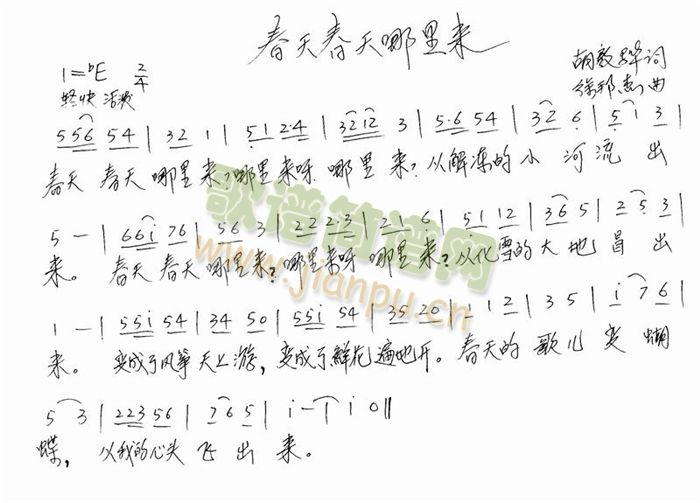 春天春天哪里来
1=♭E 2/4
轻快 活泼
词
徐邦杰曲
556 54 | 32 1 | 51 2·4 | 3212 3 | 5·6 54 | 32 6 | 5 1 3 |
春天 春天 哪里来?哪里来呀 哪里来?从解冻的小河流出
5 — | 66i 76 | 56 3 | 22 23 | 21 6 | 51 12 | 36 5 | 2 5 3 |
来。 春天 春天 哪里来?哪里来呀 哪里来?从化雪的大地冒出
1 — | 55i 54 | 34 50 | 55i 54 | 35 20 | 1 1 2 | 3 5 | i 7 6 |
来。 变成了风筝天上游,变成了鲜花遍地开。春天的歌儿变蝴
5 3 | 223 56 | 7 6 5 | i — | i 0 ‖
蝶,从我的心头飞出来。
歌谱简谱网
www.jianpu.cn